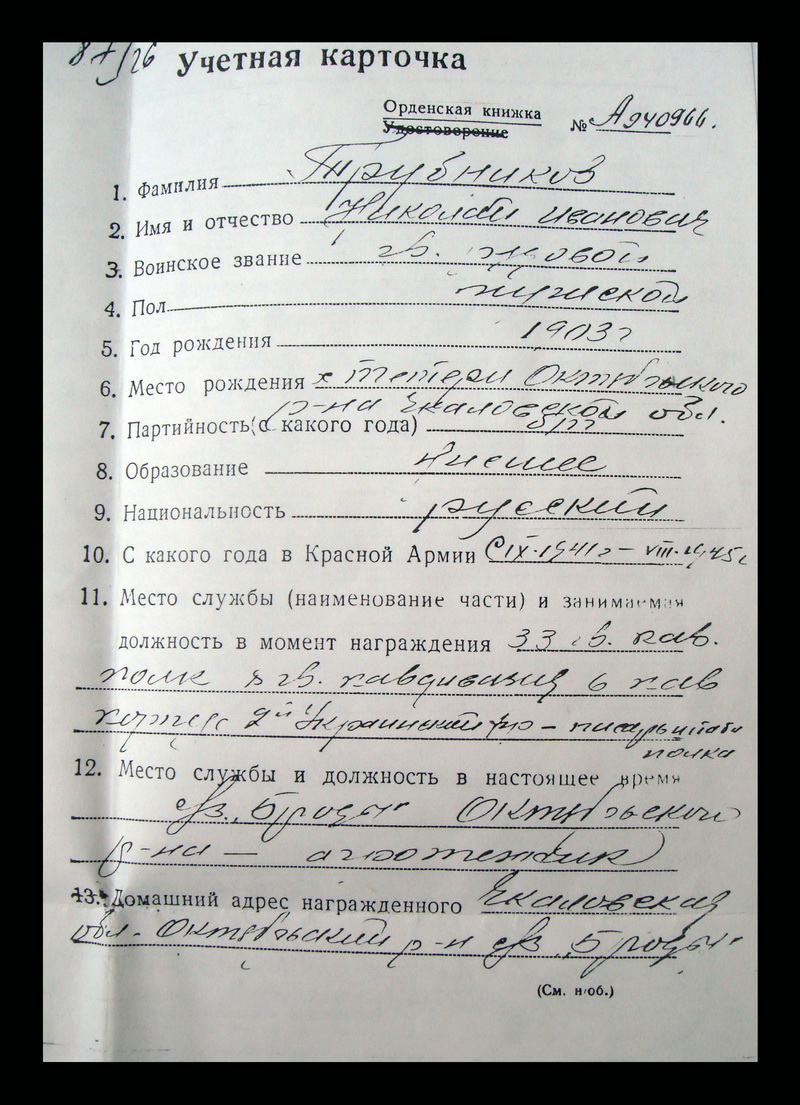 Учетная карточка
Орденская книжка
Удостоверение № А940966.
1. Фамилия Трубников
2. Имя и отчество Николай Иванович
3. Воинское звание гв. рядовой
4. Пол мужской
5. Год рождения 1903 г
6. Место рождения х Тетери Октябрьского
р-на Чкаловской обл.
7. Партийность (с какого года) б/п
8. Образование высшее
9. Национальность русский
10. С какого года в Красной Армии С IX-1941 г – VIII-1945 г
11. Место службы (наименование части) и занимаемая
должность в момент награждения 33 гв. кав.
полк 8 гв. кавдивизия 6 кав
корпус 2й Украинский фр – писарь штаба
полка
12. Место службы и должность в настоящее время
свз. „Броды" Октябрьского
р-на — агротехник
13. Домашний адрес награжденного Чкаловская
обл. Октябрьский р-н свз „Броды"
(См. н/об.)